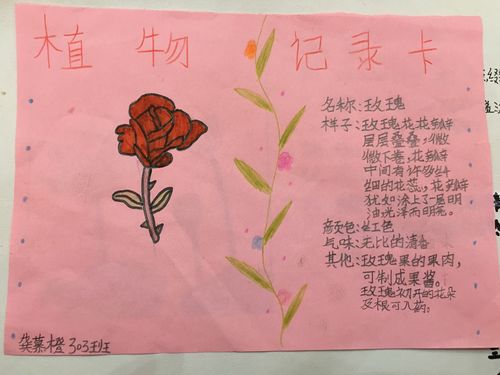 植物记录卡
名称:玫瑰
样子:玫瑰花花瓣
层层叠叠,微
微下卷,花瓣
中间有许多丝
细的花蕊,花瓣
犹如涂上了一层明
油光泽而明亮。
颜色:红色
气味:无比的清香
其他:玫瑰果的果肉,
可制成果酱。
玫瑰初开的花朵
及根可入药。
龚慕橙 303班